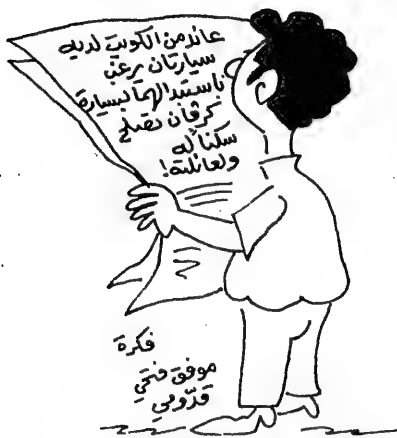 عائد من الكويت لديه
سيارتان يرغب
باستبدالهما بسيارة
كرفان تصلح
سكناً له
ولعائلته!
فكرة
موفق فتحي
قدّومي